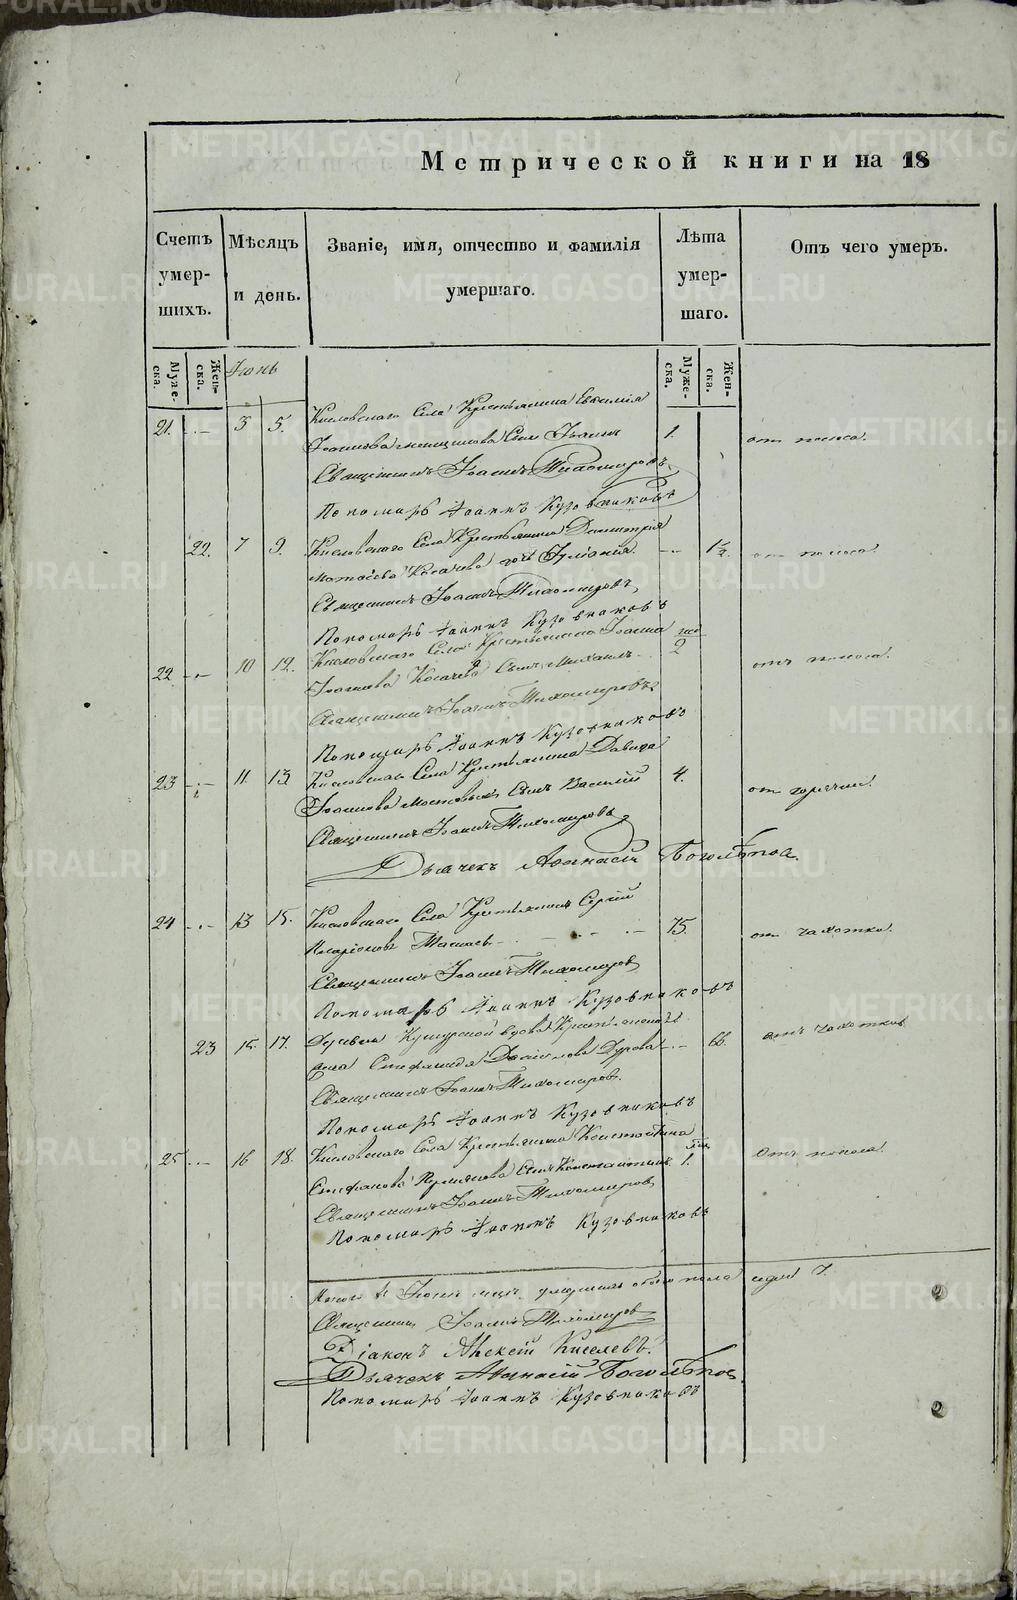 Метрической книги на 18
Счетъ умер- шихъ.
Мѣсяцъ и день.
Званіе, имя, отчество и фамилія умершаго.
Лѣта умер- шаго.
Отъ чего умеръ.
Муже- ска.
Жен- ска.
Іюнь
Муже- ска.
Жен- ска.
Кисловскаго Села Крестьянина Евѳимія
21. 3 5. Іоаннова Сынъ Іоаннъ 1. отъ поноса.
Священникъ Іоаннъ Тихомировъ
Пономарь Іоаннъ Кузовниковъ
22. 7 9. Кисловскаго Села Крестьянина Димитрія 1½. отъ поноса.
Матѳѣева Косачева дочь Іуліанія
Священникъ Іоаннъ Тихомировъ
Пономарь Іоаннъ Кузовниковъ
22 10 12. Кисловскаго Села Крестьянина Іоанна 2 отъ поноса.
Іоаннова Косачева Сынъ Михаилъ
Священникъ Іоаннъ Тихомировъ
Пономарь Іоаннъ Кузовниковъ
23 11. 13. Кисловскаго Села Крестьянина Давида
Іоаннова Сынъ Василій 4. отъ горячки.
Священникъ Іоаннъ Тихомировъ
Дьячекъ Аѳанасій Боголѣповъ.
24 13 15. Кисловскаго Села Крестьянинъ Сергій
Иларіоновъ 75. отъ чахотки.
Священникъ Іоаннъ Тихомировъ
Пономарь Іоаннъ Кузовниковъ
23 15. 17. Деревни вдова 66. отъ чахотки
Стефанида Даніилова
Священникъ Іоаннъ Тихомировъ.
Пономарь Іоаннъ Кузовниковъ
25 16 18. Кисловскаго Села Крестьянина Константина
Стефанова Сынъ Константинъ 1. Отъ поноса.
Священникъ Іоаннъ Тихомировъ
Пономарь Іоаннъ Кузовниковъ
Итого въ Іюнѣ умершихъ обоего пола 7.
Священникъ Іоаннъ Тихомировъ
Діаконъ Алексій Киселевъ.
Дьячекъ Аѳанасій Боголѣповъ
Пономарь Іоаннъ Кузовниковъ
METRIKI.GASO-URAL.RU